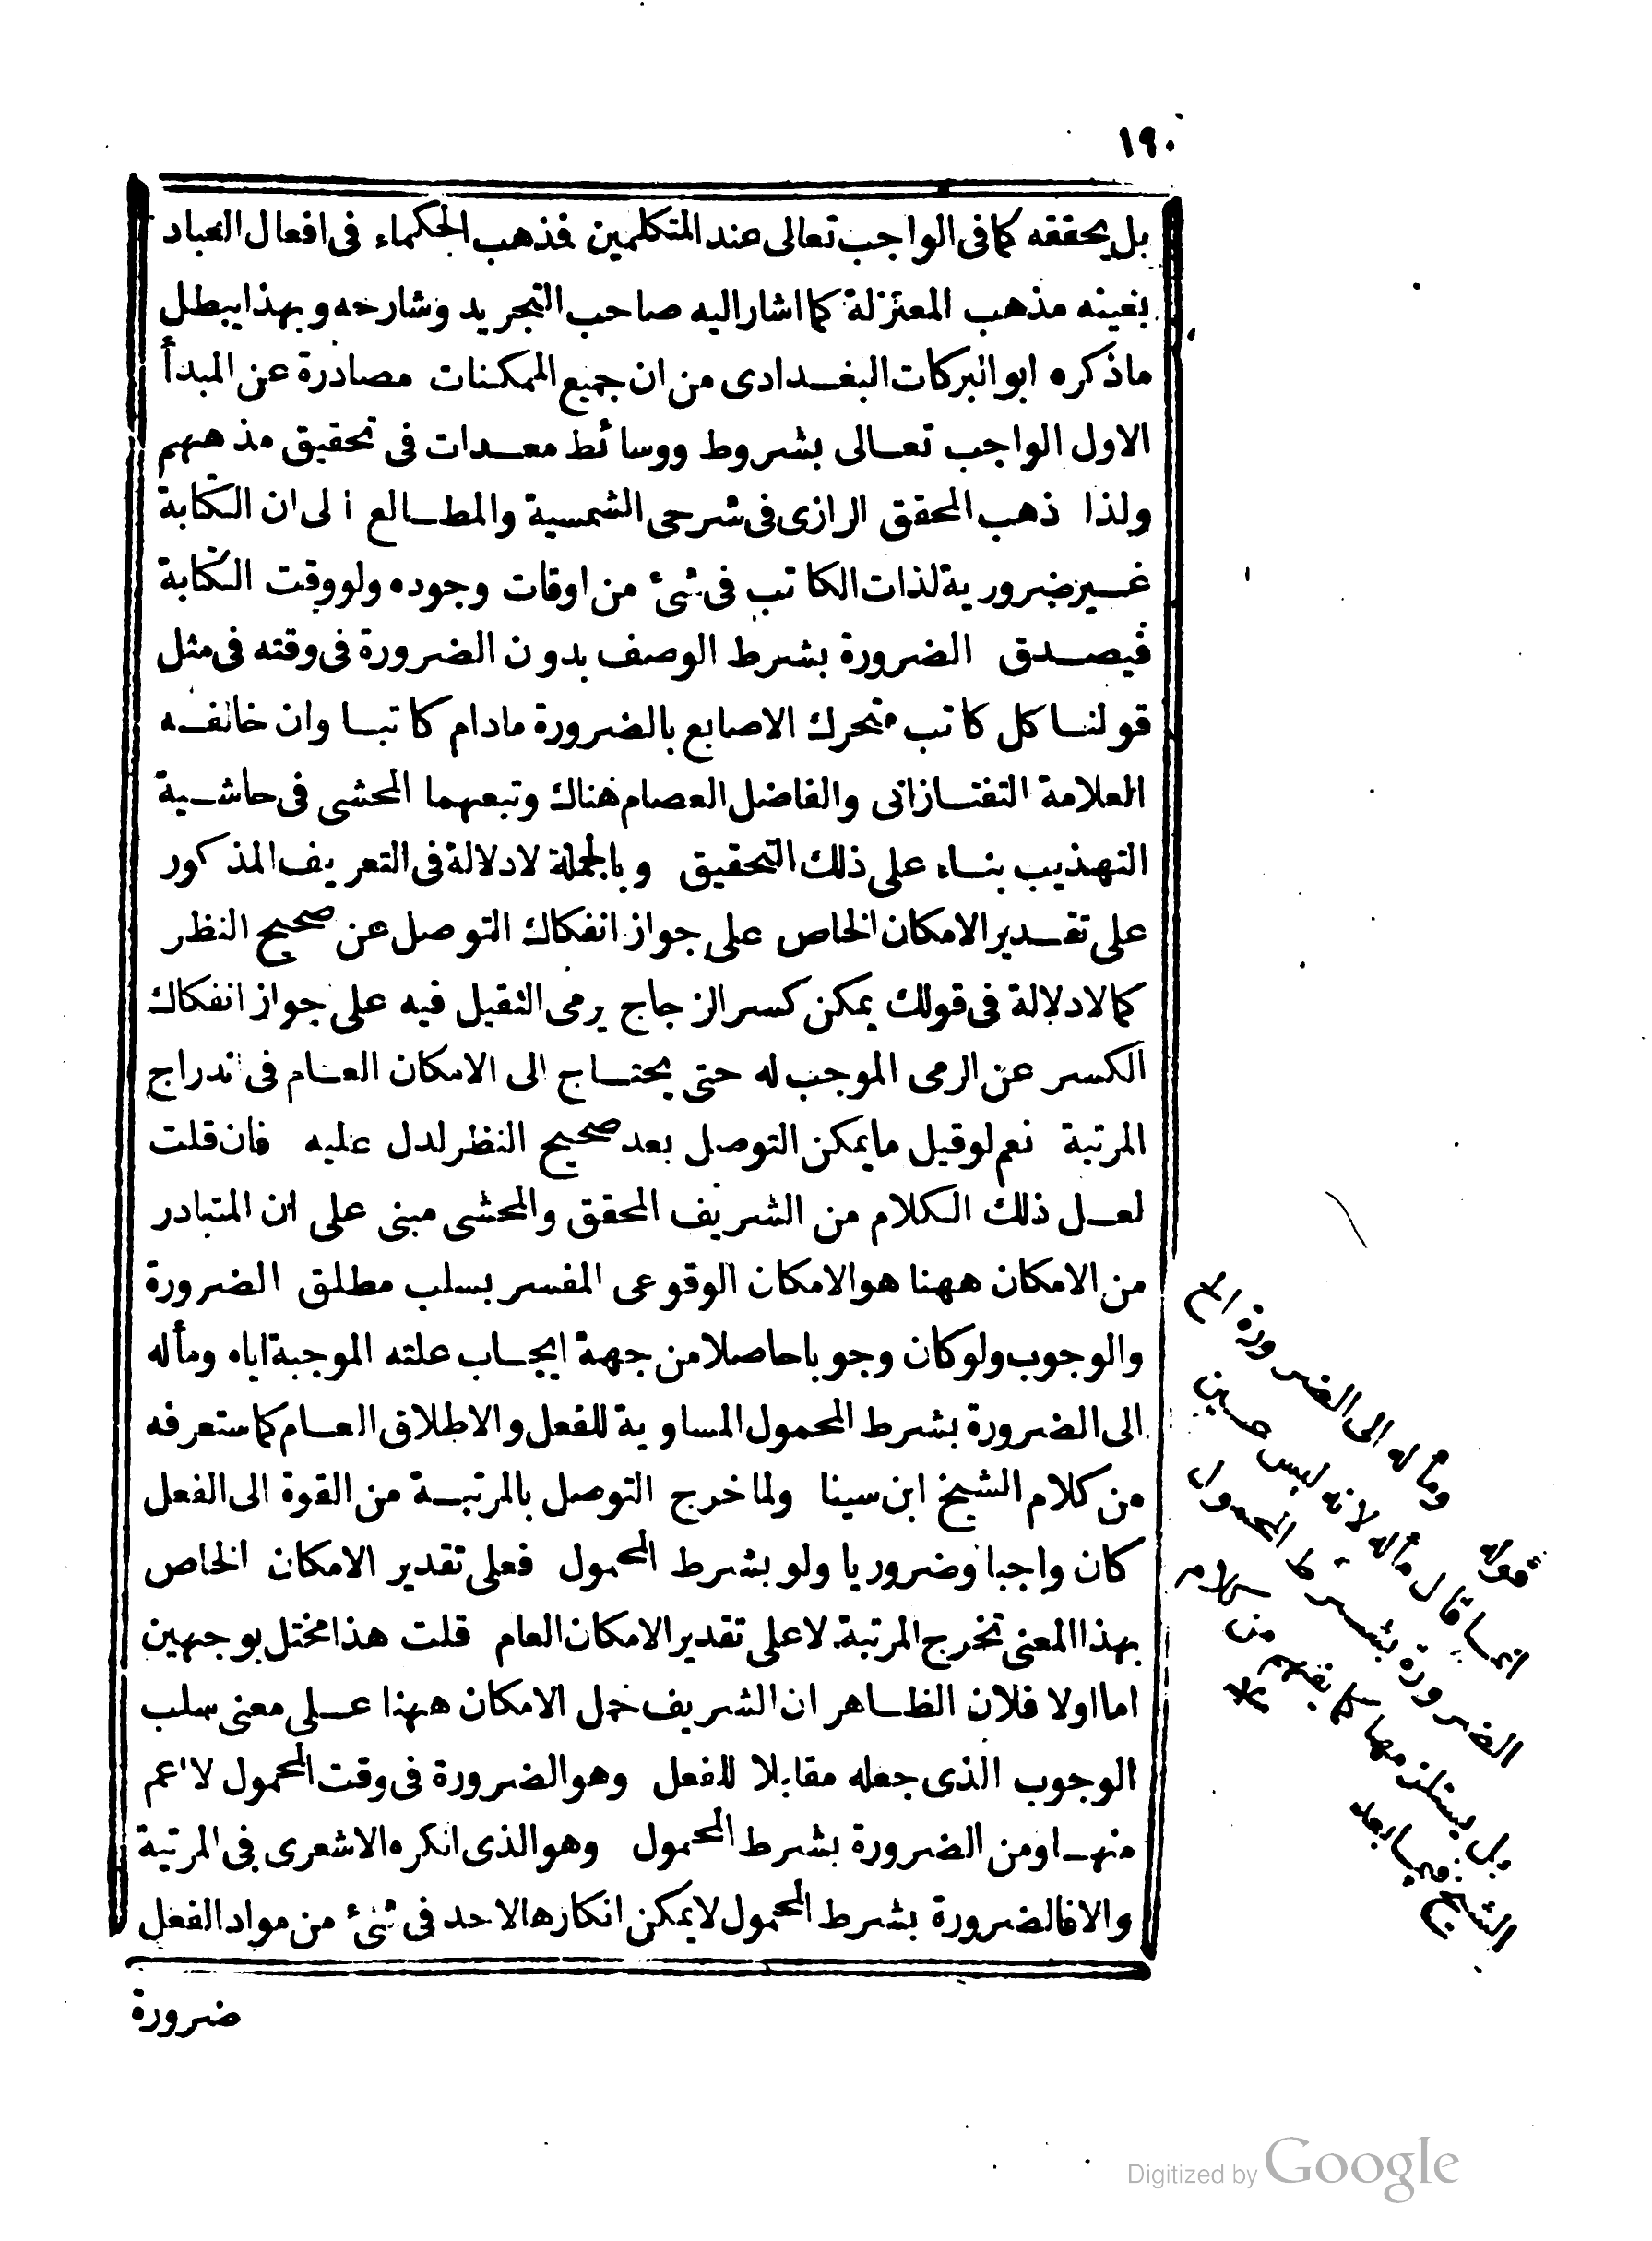 ١٩٠
بل يحققه كما فى الواجب تعالى عند المتكلمين فذهب الحكماء فى افعال العباد
بعينه مذهب المعتزلة كما اشار اليه صاحب التجريد وشارحه وبهذا يبطل
ماذكره ابو البركات البغدادى من ان جميع الممكنات مصادرة عن المبدأ
الاول الواجب تعالى بشروط ووسائط معدات فى تحقيق مذهبهم
ولذا ذهب المحقق الرازى فى شرحى الشمسية والمطالع الى ان الكتابة
غير ضرورية لذات الكاتب فى شئ من اوقات وجوده ولو وقت الكتابة
فيصدق الضرورة بشرط الوصف بدون الضرورة فى وقته فى مثل
قولنا كل كاتب متحرك الاصابع بالضرورة مادام كاتبا وان خالفه
العلامة التفتازانى والفاضل العصام هناك وتبعهما المحشى فى حاشية
التهذيب بناء على ذلك التحقيق وبالجملة لا دلالة فى التعريف المذكور
على تقدير الامكان الخاص على جواز انفكاك التوصل عن صحيح النظر
كما لا دلالة فى قولك يمكن كسر الزجاج برمى الثقيل فيه على جواز انفكاك
الكسر عن الرمى الموجب له حتى يحتاج الى الامكان العام فى اندراج
المرتبة نعم لوقيل مايمكن التوصل بعد صحيح النظر لدل عليه فان قلت
لعل ذلك الكلام من الشريف المحقق والمحشى مبنى على ان المتبادر
من الامكان ههنا هو الامكان الوقوعى المفسر بسلب مطلق الضرورة
والوجوب ولوكان وجوبا حاصلا من جهة ايجاب علته الموجبة اياه ومأله
الى الضرورة بشرط المحمول المساوية للفعل والاطلاق العام كما ستعرفه
من كلام الشيخ ابن سينا ولما خرج التوصل بالمرتبة من القوة الى الفعل
كان واجبا وضروريا ولو بشرط المحمول فعلى تقدير الامكان الخاص
بهذا المعنى تخرج المرتبة لا على تقدير الامكان العام قلت هذا مختل بوجهين
اما اولا فلان الظاهر ان الشريف حمل الامكان ههنا على معنى سلب
الوجوب الذى جعله مقابلا للفعل وهو الضرورة فى وقت المحمول لا اعم
منها ومن الضرورة بشرط المحمول وهو الذى انكره الاشعرى فى المرتبة
والا فالضرورة بشرط المحمول لايمكن انكارها لاحد فى شئ من مواد الفعل
ضرورة
قوله ومأله الى الضرورة الخ
انما قال مأله لانه ليس عين
الضرورة بشرط المحمول
بل يستلزمها كما يفهم من كلام
الشيخ فيما بعد
Digitized by Google